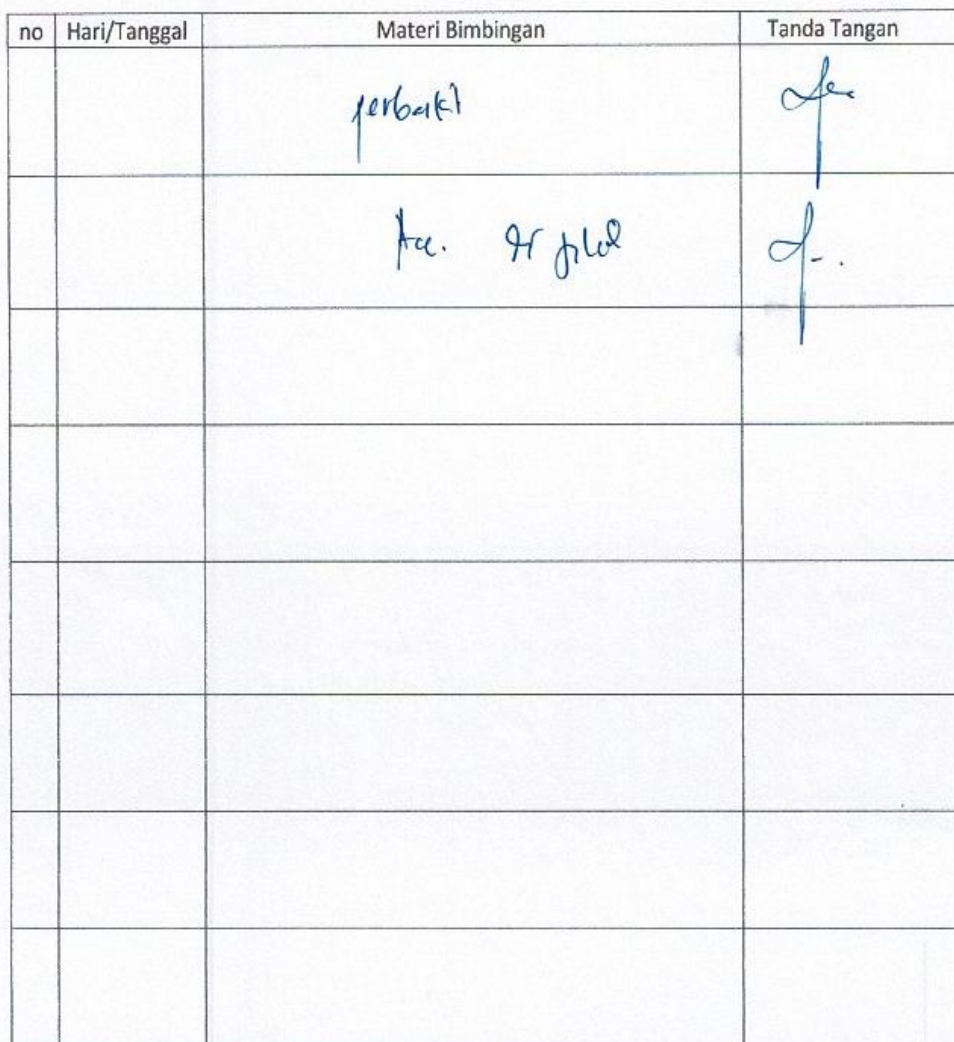 no Hari/Tanggal Materi Bimbingan Tanda Tangan
perbaiki
Acc.